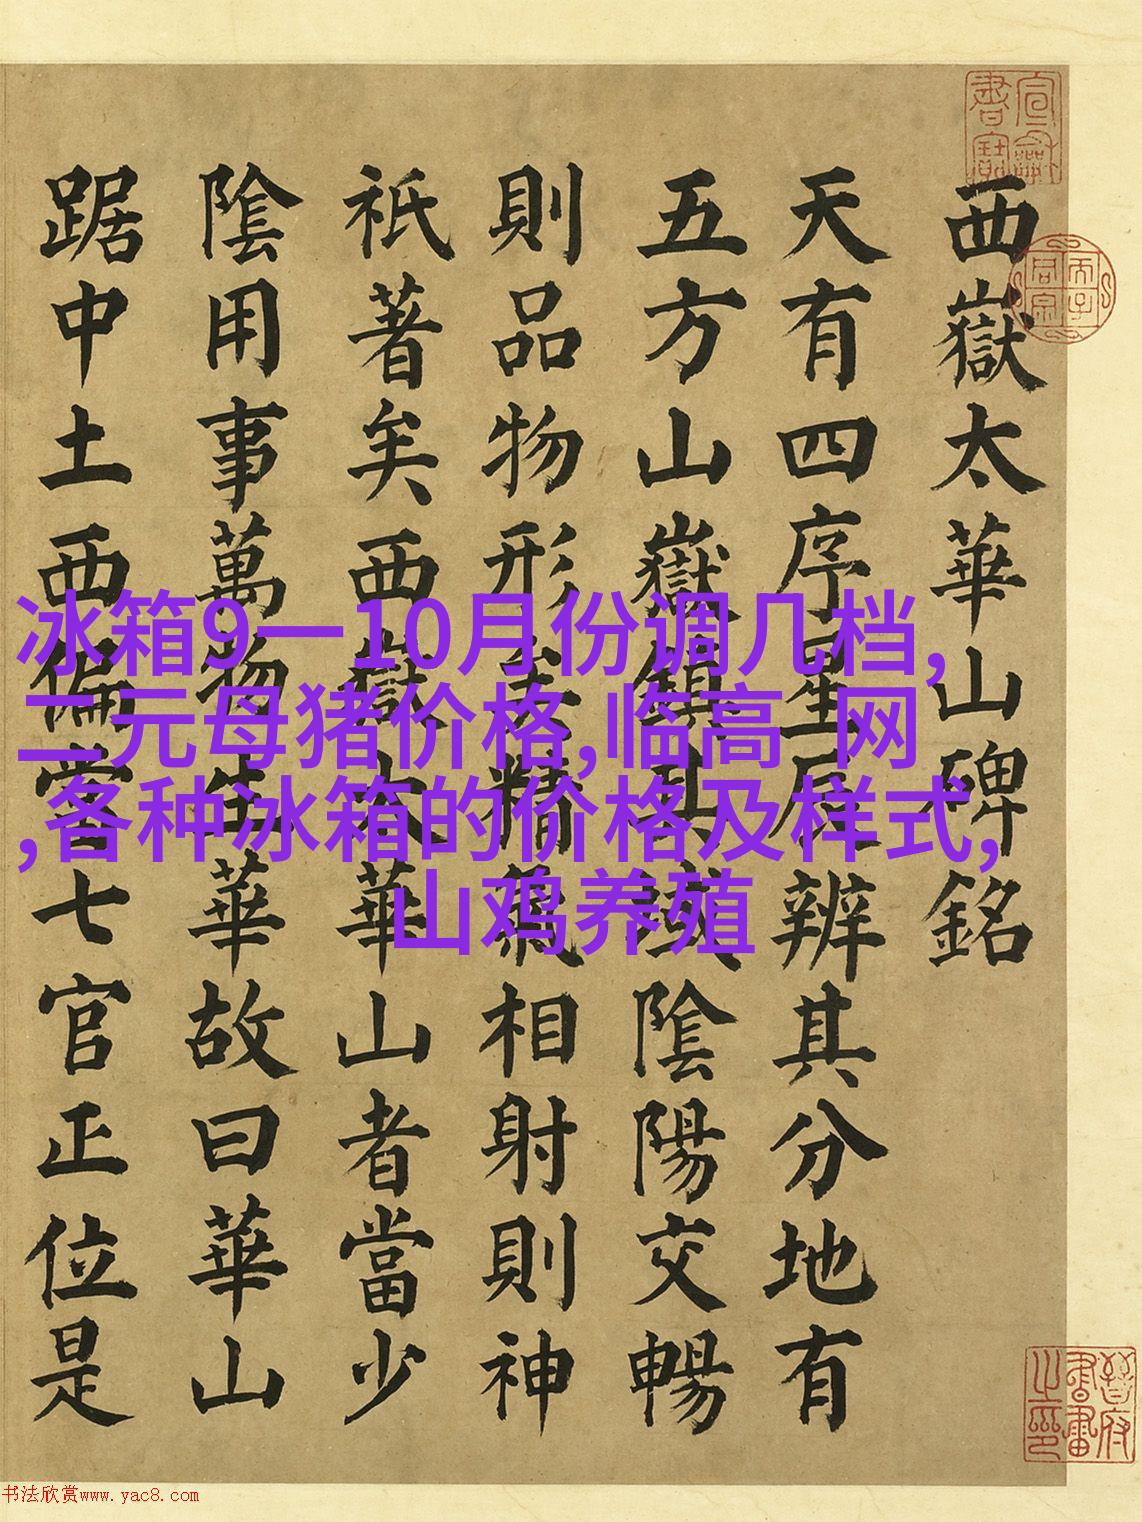 西嶽太華山碑銘
天有四序星辰辨其分地有
五方山嶽鎮其域陰陽交暢
則品物形精氣相射則神
祇著矣西嶽太華山者當少
陰用事萬物生華故曰華山
踞中土西偏七官正位是
冰箱9一10月份调几档,
二元母猪价格,临高 网
,各种冰箱的价格及样式,
山鸡养殖
宣龢書寶
晉府書畫之印
书法欣赏www.yac8.com